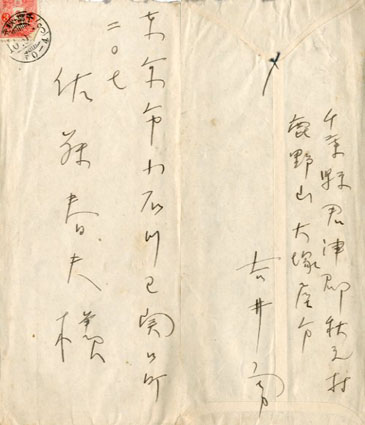 東京市小石川区関口町
二〇七
佐藤春夫様
千葉縣君津郡秋元村
鹿野山大塚屋方
吉井勇